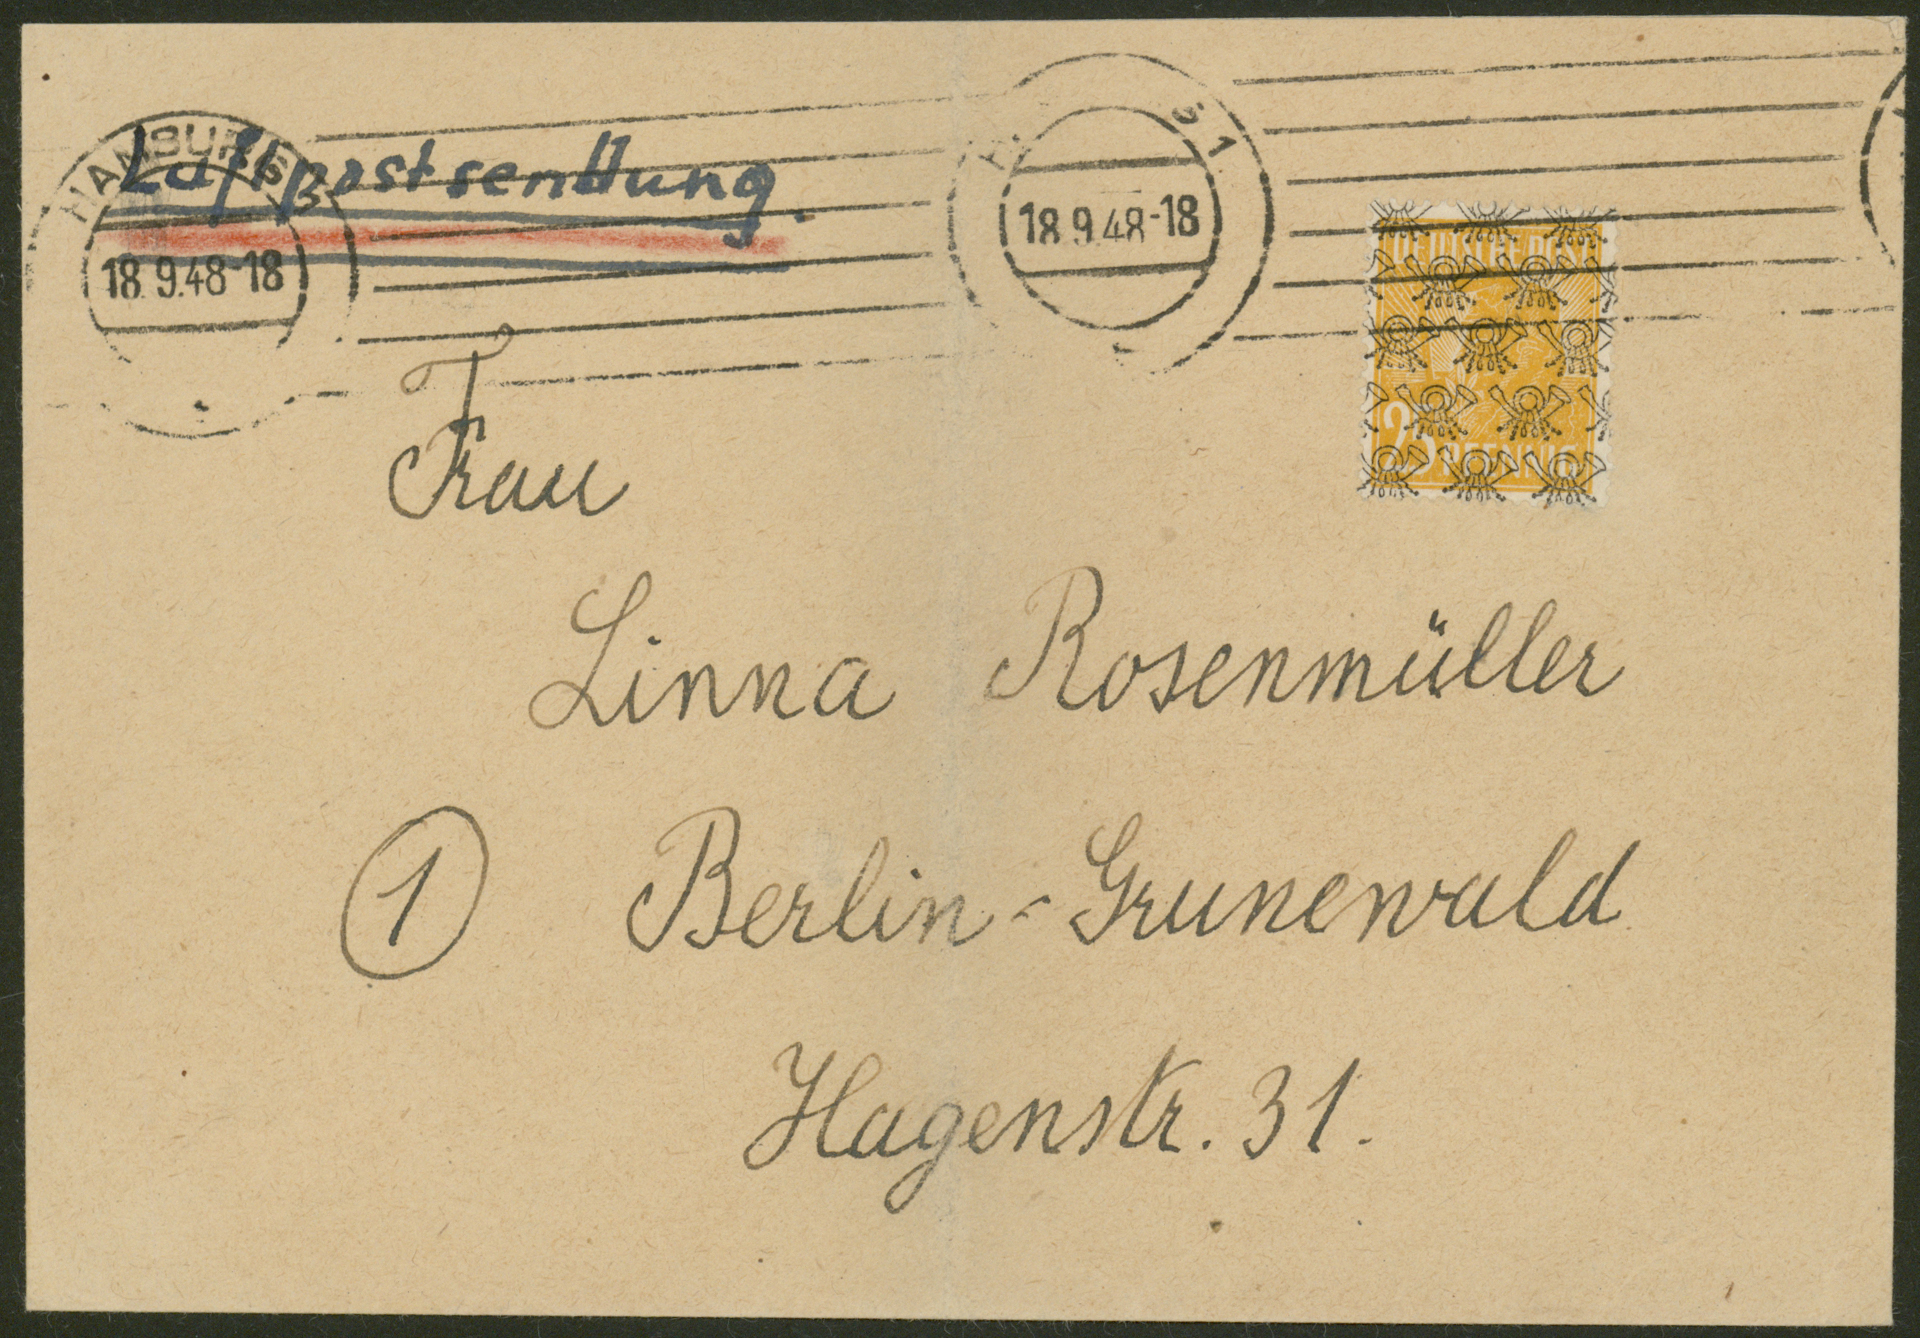 HAMBURG
18.9.48-18
Luftpostsendung.
18.9.48-18
DEUTSCHE POST
25 PFENNIG
Frau
Linna Rosenmüller
1 Berlin-Grunewald
Hagenstr. 31.